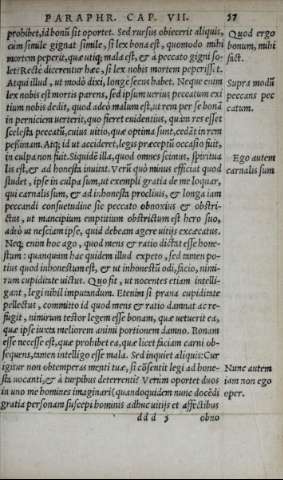 PARAPHR. CAP. VII. 57
prohibet, id bonū sit oportet. Sed rursus obiecerit aliquis, Quod ergo
cùm simile gignat simile, si lex bona est, quomodo mihi bonum, mihi
mortem peperit, quæ utiq; mala est, & à peccato gigni so-
let? Rectè diceretur hæc, si lex nobis mortem peperisset.
Atqui illud, ut modò dixi, longe secus habet. Neque enim Supra modū
lex nobis est mortis parens, sed ipsum uerius peccatum exi peccans pec
tium nobis dedit, quod adeò malum est, ut rem per se bonā catum.
in perniciem uerterit, quo fieret euidentius, quàm res esset
scelesta peccatū, cuius uitio, quæ optima sunt, cedāt in rem
pessimam. Atq; id ut accideret, legis præceptū occasio fuit,
in culpa non fuit. Siquidē illa, quod omnes scimus, spiritua Ego autem
lis est, & ad honesta inuitat. Verū quò minus efficiat quod carnalis sum
studet, ipse in culpa sum, ut exempli gratia de me loquar,
qui carnalis sum, & ad inhonesta procliuis, & longa iam
peccandi consuetudine sic peccato obnoxius & obstri-
ctus, ut mancipium emptitium obstrictum est hero suo,
adeò ut nesciam ipse, quid debeam agere uitijs excæcatus.
Neq; enim hoc ago, quod mens & ratio dictat esse hone-
stum: quanquam hæc quidem illud expeto, sed tamen po-
tius quod inhonestum est, & ut inhonestū odi, facio, nimi-
rum cupiditate uictus. Quo fit, ut nocentes etiam intelli-
gant, legi nihil imputandum. Etenim si praua cupiditate
pellectus, committo id quod mens & ratio damnat ac re-
fugit, nimirum testor legem esse bonam, quæ uetuerit ea,
quæ ipse iuxta meliorem animi portionem damno. Bonam
esse necesse est, quæ prohibet ea, quæ licet faciam carni ob-
sequens, tamen intelligo esse mala. Sed inquiet aliquis: Cur
igitur non obtemperas menti tuæ, si cōsentit legi ad hone- Nunc autem
sta uocanti, & à turpibus deterrenti? Verùm oportet duos iam non ego
in uno me homines imaginari (quandoquidem nunc docēdi oper.
gratia personam suscepi hominis adhuc uitijs et affectibus
ddd 5 obno